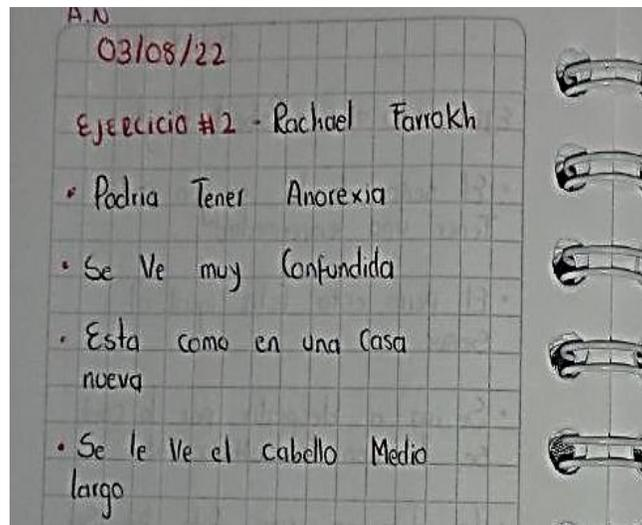 A.N
03/08/22
Ejercicio #2 - Rachael Farrokh
• Podria Tener Anorexia
• Se Ve muy Confundida
• Esta como en una Casa
nueva
• Se le Ve el cabello Medio
largo